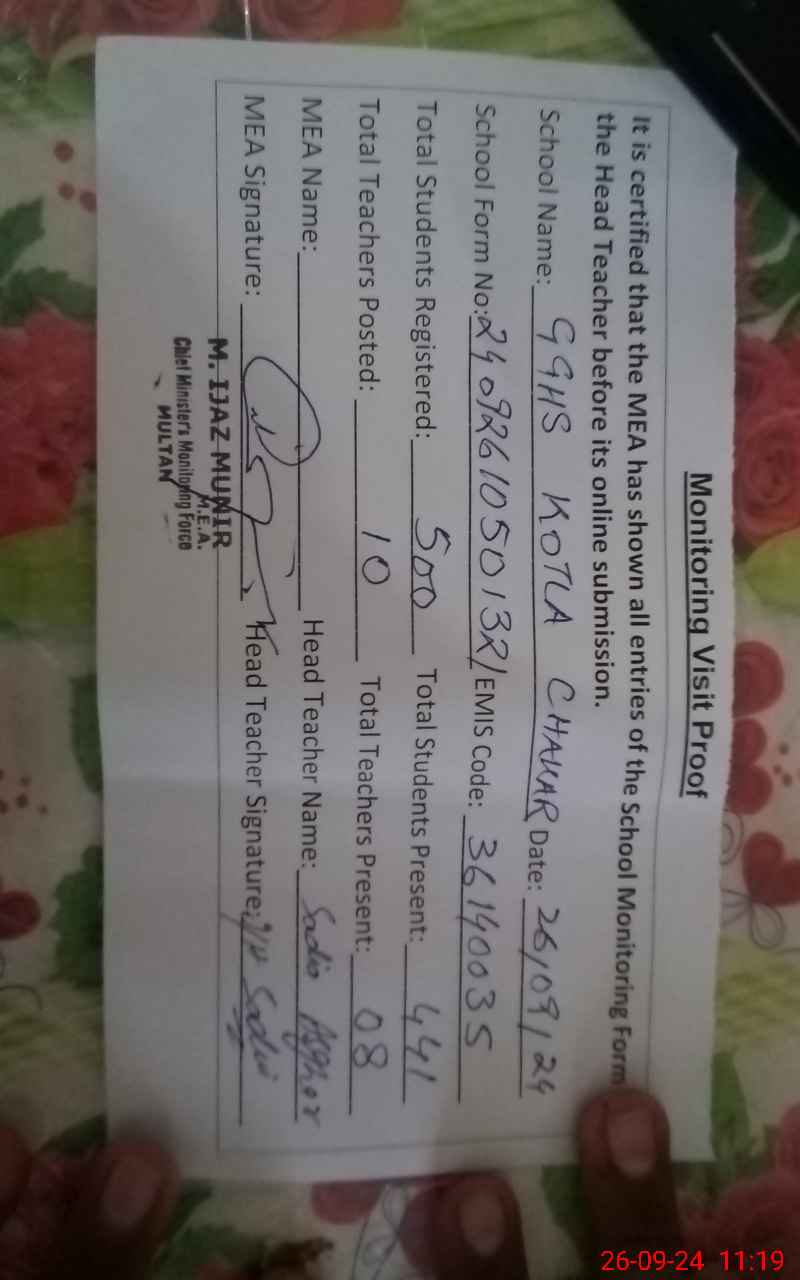 Monitoring Visit Proof
It is certified that the MEA has shown all entries of the School Monitoring Form
the Head Teacher before its online submission.
School Name: GGHS KOTLA CHAKAR Date: 26/09/24
School Form No: 2409261050132/ EMIS Code: 36140035
Total Students Registered: 500 Total Students Present: 441
Total Teachers Posted: 10 Total Teachers Present: 08
MEA Name: Head Teacher Name: Sadia Asghar
MEA Signature: Head Teacher Signature: Sadia
M. IJAZ MUNIR
M.E.A.
Chief Minister's Monitoring Force
MULTAN
26-09-24 11:19